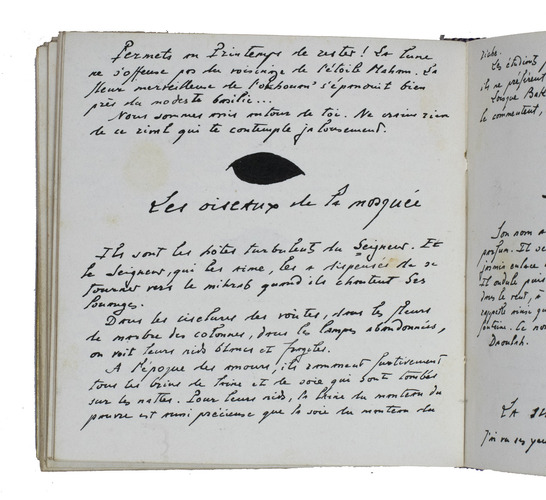 Permets au Printemps de rester ! La lune
ne s'offense pas du voisinage de l'étoile Maham. La
fleur merveilleuse de s'épanouit bien
près du modeste basilic...
Nous sommes unis autour de toi. Ne crains rien
de ce rival qui te contemple jalousement.
Les oiseaux de la mosquée
Ils sont les hôtes turbulents du Seigneur. Et
le Seigneur, qui les aime, les a dispensés de se
tourner vers le mihrab quand ils chantent ses
louanges.
Dans les ciselures des voûtes, dans les fleurs
de marbre des colonnes, dans les lampes abandonnées,
on voit leurs nids blancs et fragiles.
A l'époque des amours, ils ramassent furtivement
tous les brins de laine et de soie qui sont tombés
sur les nattes. Pour leurs nids, la laine du manteau du
pauvre est aussi précieuse que la soie du manteau du
riche.
Les étudiants
ils ne préfèrent
le commentent,
Son nom
parfum. Il
jasmin enlace
Il ondule
dans le vent,
rappelle ainsi
fontaine. Le nom
Daoulah.
LA
J'ai vu ses yeux